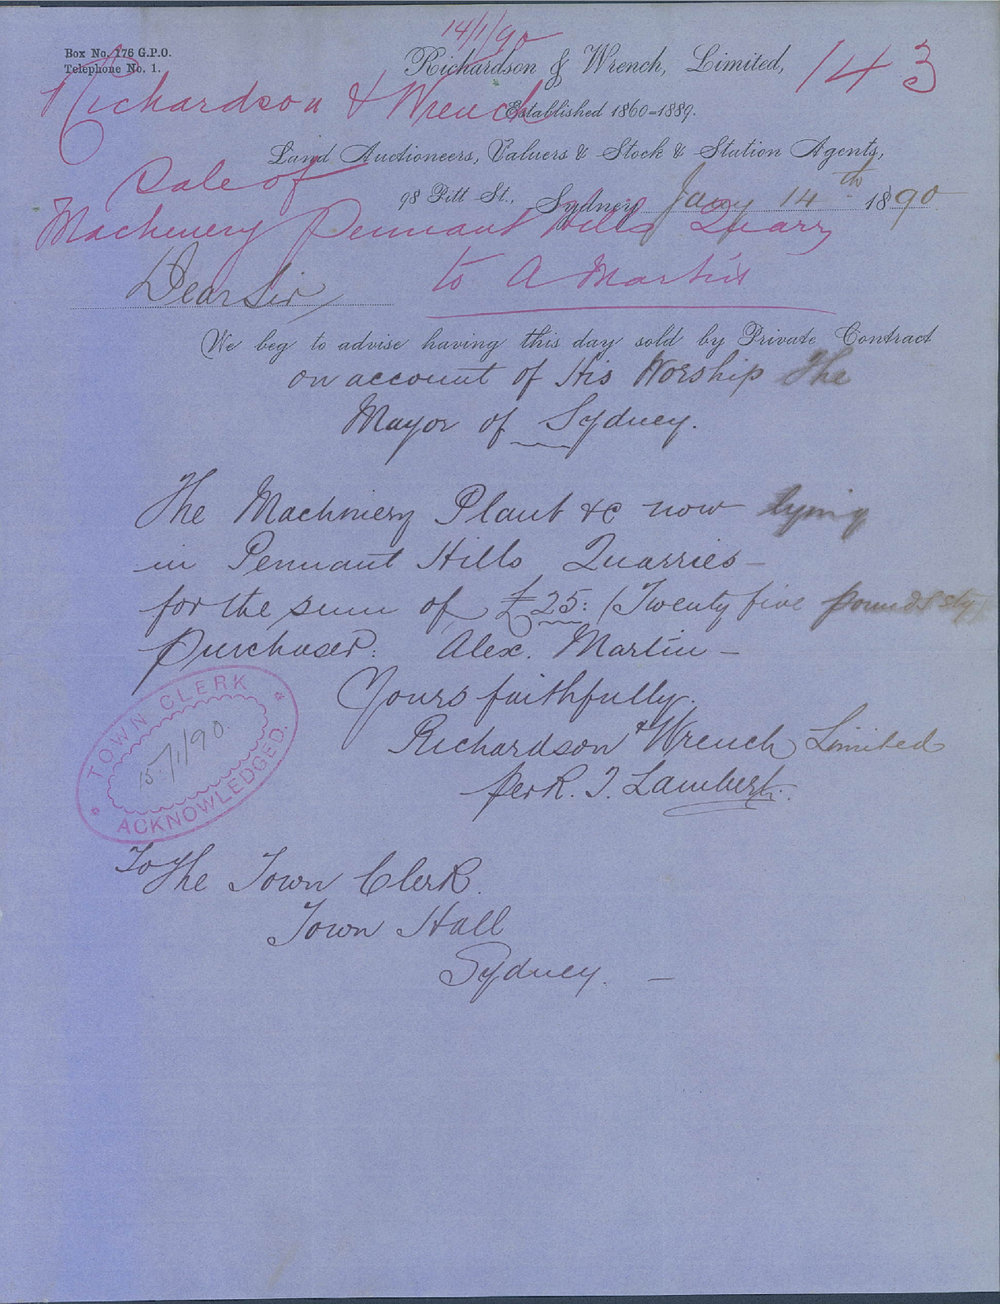 14/1/90
Box No. 176 G.P.O.
Telephone No. 1.
Richardson & Wrench, Limited,
143
Richardson & Wrench
Established 1860-1889.
Land Auctioneers, Valuers & Stock & Station Agents,
Sale of
98 Pitt St., Sydney Jany 14th 1890
Machinery Pennant Hills Quarry
to A Martin
Dear Sir
We beg to advise having this day sold by Private Contract
on account of His Worship The
Mayor of Sydney.
The Machinery Plant &c now lying
in Pennant Hills Quarries -
for the sum of £25: (Twenty five pounds stg)
Purchaser: Alex. Martin -
Yours faithfully.
Richardson & Wrench Limited
per R. T. Lambert.
TOWN CLERK
15/1/90.
ACKNOWLEDGED.
To The Town Clerk.
Town Hall
Sydney. -